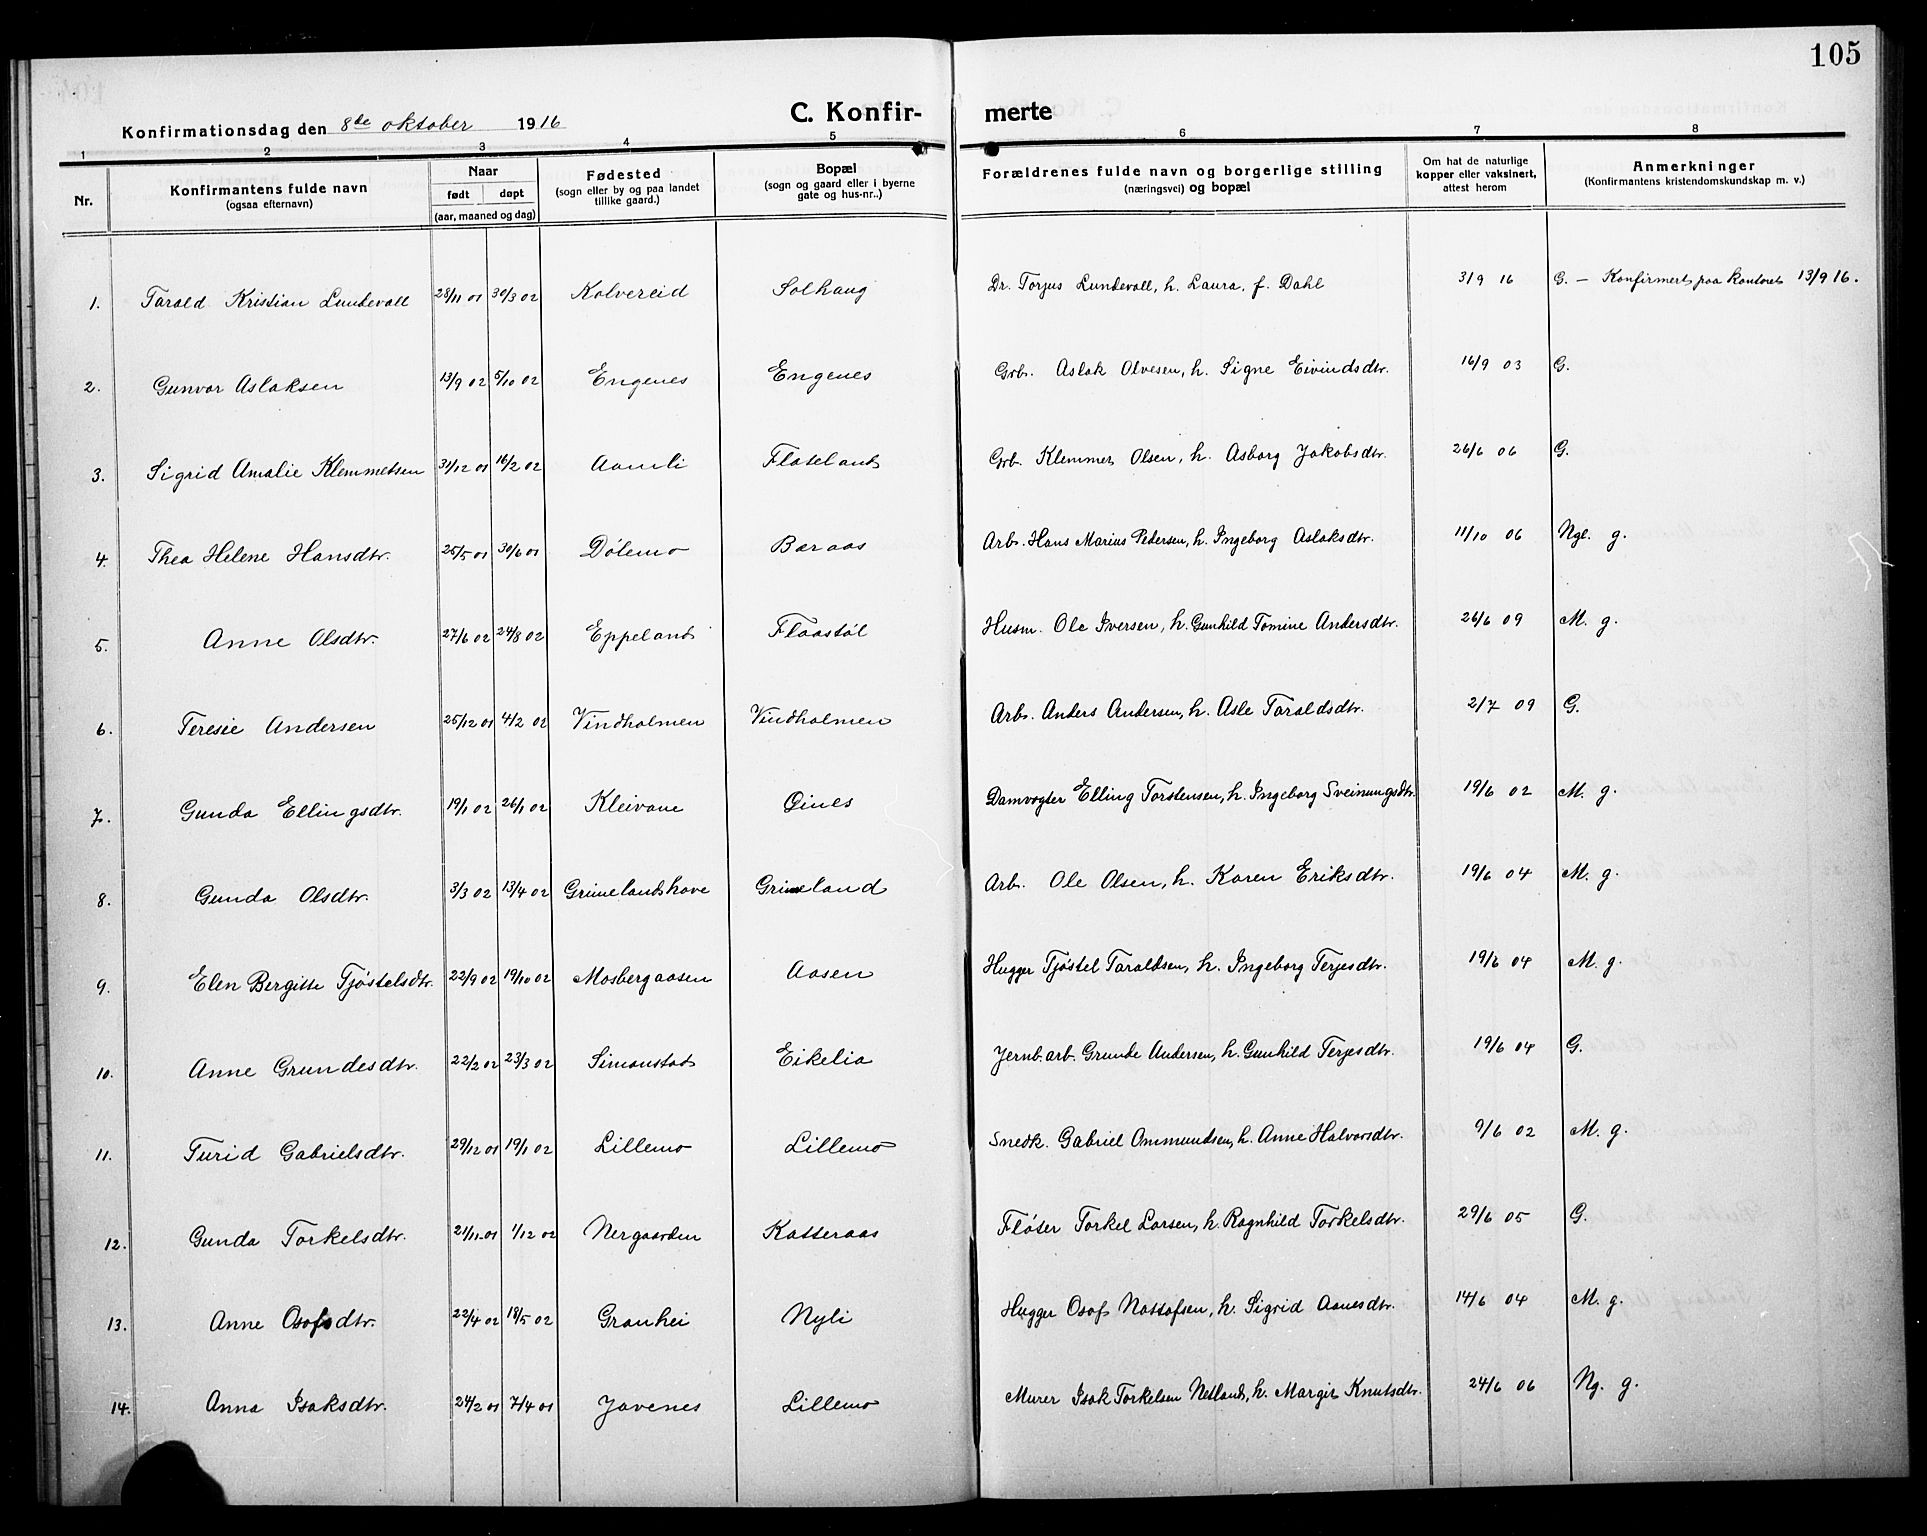 105
C. Konfir-merte
Konfirmationsdag den 8de oktober 1916
1 2 3 4 5 6 7 8
Nr. Konfirmantens fulde navn (ogsaa efternavn) Naar født døpt (aar, maaned og dag) Fødested (sogn eller by og paa landet tillike gaard.) Bopæl (sogn og gaard eller i byerne gate og hus-nr..) Forældrenes fulde navn og borgerlige stilling (næringsvei) og bopæl Om hat de naturlige kopper eller vaksinert, attest herom Anmerkninger (Konfirmantens kristendomskundskap m. v.)
1. Tarald Kristian Lundevall 28/11 01 30/3 02 Kolvereid Solhaug Dr. Torjus Lundevall, h. Laura, f. Dahl 3/9 16 G. – Konfirmert paa kontoret 13/9 16.
2. Gunvor Aslaksen 13/9 02 5/10 02 Engenes Engenes Grb. Aslak Olvesen, h. Signe Eivindsdtr. 16/9 03 G.
3. Sigrid Amalie Klemmetsen 31/12 01 16/2 02 Aamli Flateland Grb. Klemmet Olsen, h. Asborg Jakobsdtr. 26/6 06 G.
4. Thea Helene Hansdtr. 25/5 01 30/6 01 Dölemo Baraas Arb. Hans Marius Pedersen, h. Ingeborg Aslaksdtr. 11/10 06 Ngl. g.
5. Anne Olsdtr. 27/6 02 24/8 02 Eppeland Flaastöl Husm. Ole Iversen, h. Gunhild Tomine Andersdtr. 26/6 09 M. g.
6. Teresie Andersen 25/12 01 4/2 02 Vindholmen Vindholmen Arb. Anders Andersen, h. Asle Taraldsdtr. 2/7 09 G.
7. Gunda Ellingsdtr. 19/1 02 26/1 02 Kleivane Øines Damvogter Elling Torstensen, h. Ingeborg Sveinungsdtr. 19/6 02 M. g.
8. Gunda Olsdtr. 3/3 02 13/4 02 Grimelandshave Grimeland Arb. Ole Olsen, h. Karen Eriksdtr. 19/6 04 M. g.
9. Elen Bergitte Tjöstelsdtr. 22/9 02 19/10 02 Mosbergaasen Aasen Hugger Tjöstel Taraldsen, h. Ingeborg Terjesdtr. 19/6 04 M. g.
10. Anne Grundesdtr. 22/2 02 23/3 02 Simonstad Eikelia Jernb.arb. Grunde Andersen, h. Gunhild Terjesdtr. 19/6 04 G.
11. Turid Gabrielsdtr. 29/12 01 19/1 02 Lillemo Lillemo Snedk. Gabriel Ommundsen, h. Anne Halvorsdtr. 9/6 02 M. g.
12. Gunda Torkelsdtr. 21/11-01 1/12 02 Nergaarden Katteraas Flöter Torkel Larsen, h. Ragnhild Torkelsdtr. 29/6 05 G.
13. Anne Osofsdtr. 22/4 02 18/5 02 Granhei Nyli Hugger Osof Nottofsen, h. Sigrid Aanesdtr. 14/6 04 M. g.
14. Anna Isaksdtr. 24/2 01 7/4 01 Jovenes Lillemo Murer Isak Torkelsen Netland, h. Margit Knutsdtr. 24/6 06 Ng. g.